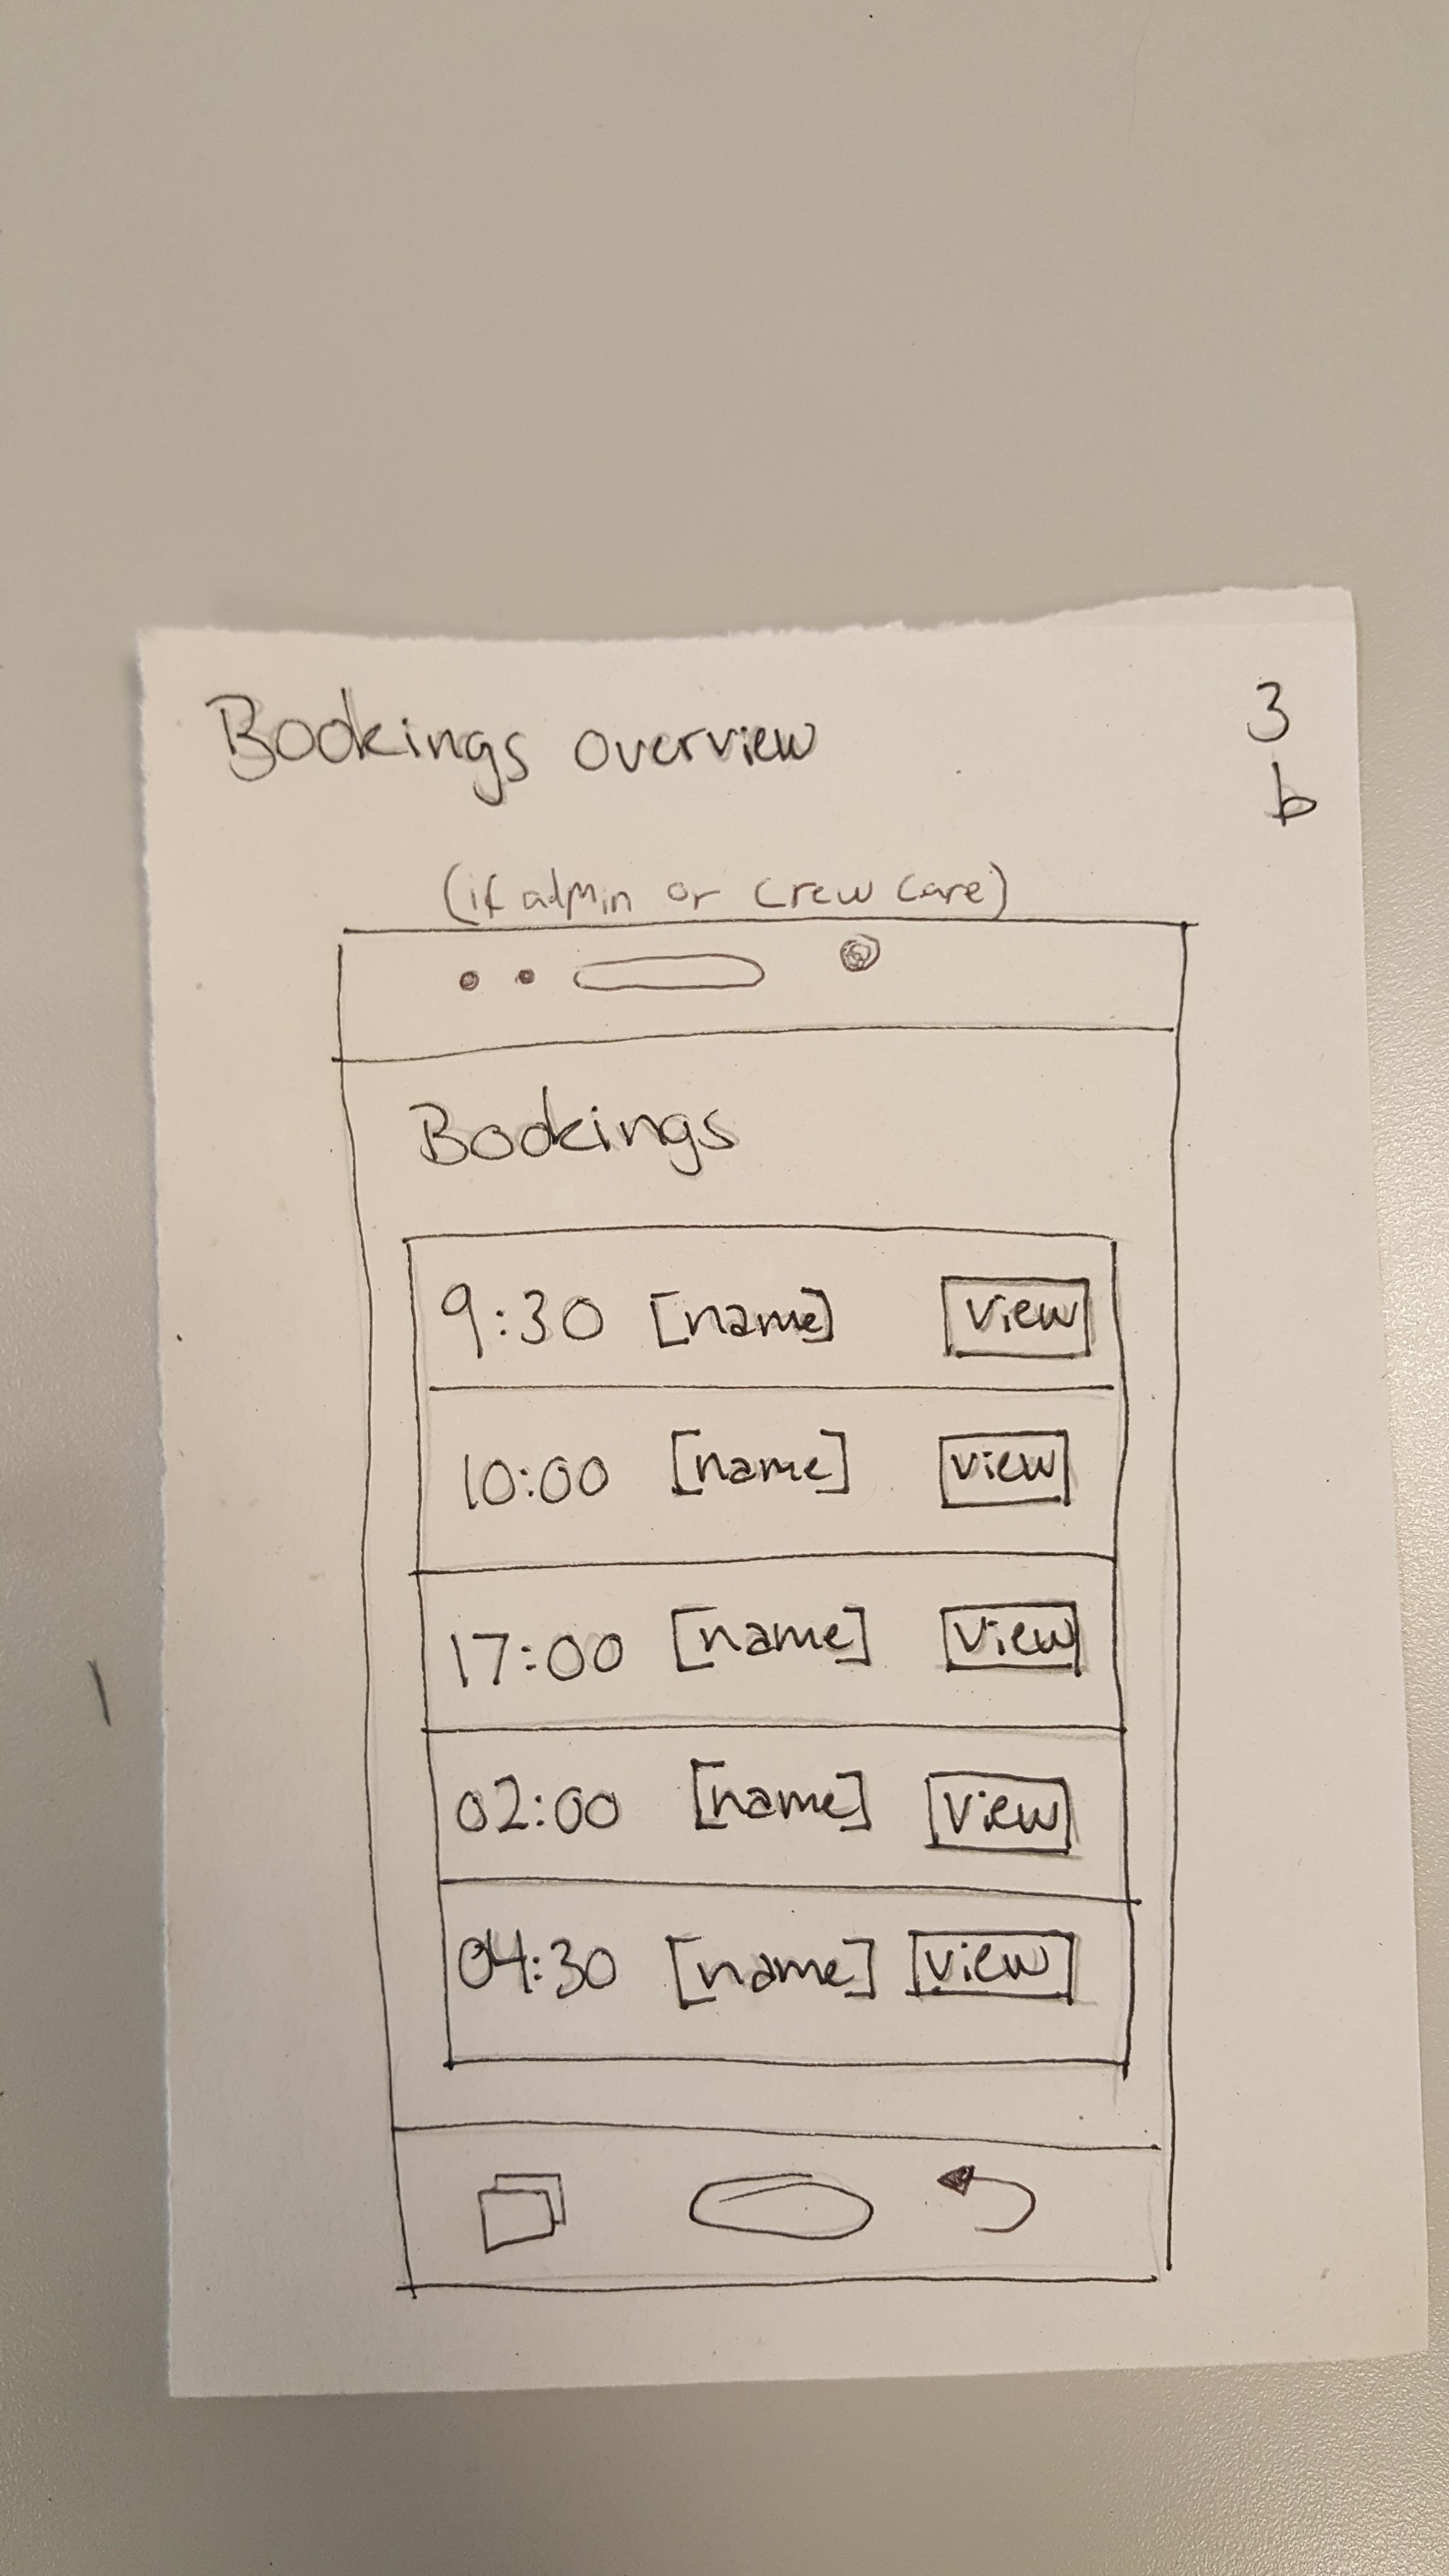 Bookings overview
3
b
(if admin or crew care)
Bookings
9:30 [name] view
10:00 [name] view
17:00 [name] view
02:00 [name] view
04:30 [name] view